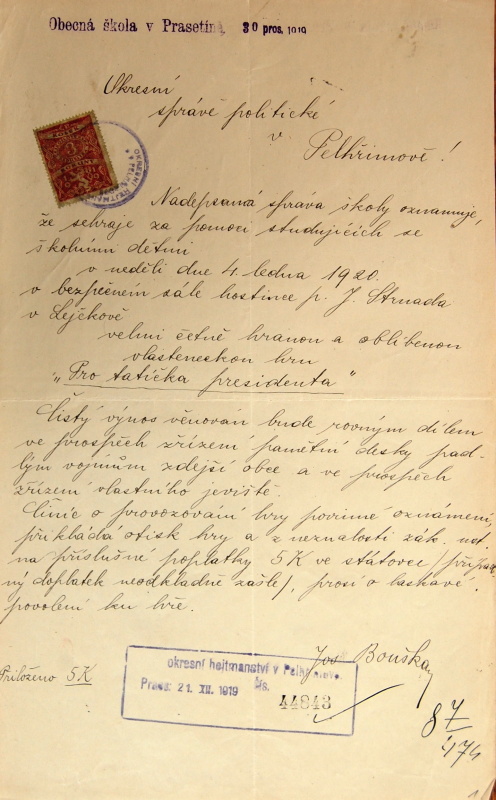 Obecná škola v Prasetíně, 30 pros. 1919
Okresní
správě politické
v
Pelhřimově!
OKRESNÍ HEJTMAN
Nadepsaná správa školy oznamuje,
že sehraje za pomoci studujících se
školními dětmi
v neděli dne 4 ledna 1920
v bezpečném sále hostince p. J. Strnada
v Lejčkově
velmi četně hranou a oblíbenou
vlasteneckou hru
„Pro tatíčka presidenta"
Čistý výnos věnován bude rovným dílem
ve prospěch zřízení pamětní desky pad-
lým vojínům zdejší obce a ve prospěch
zřízení vlastního jeviště.
Činíc o provozování hry povinné oznámení,
přikládá otisk hry a z neznalosti zák. ust.
na příslušné poplatky 5 K ve státovce /případ
ný doplatek neodkladně zašle/, prosí o laskavé
povolení ku hře.
Jos. Bouška
Přiloženo 5 K
okresní hejtmanství v Pelhřimově.
Praes: 21. XII. 1919 čís.
44843
87
474